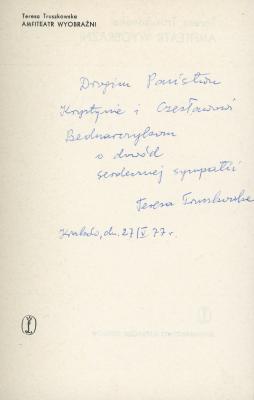 Teresa Truszkowska
AMFITEATR WYOBRAŹNI
Drogim Państwu
Krystynie i Czesławowi
Bednarczykom
w dowód
serdecznej sympatii
Teresa Truszkowska
Kraków, dn. 27/V 77 r.